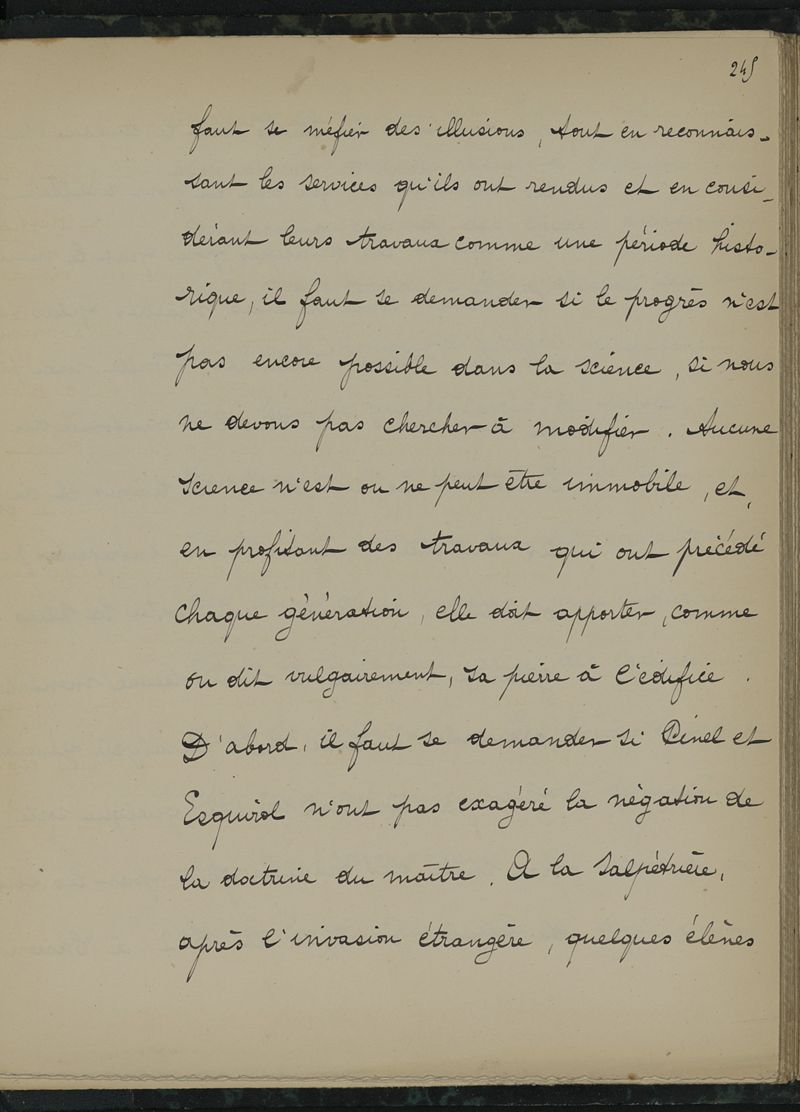 245
faut se méfier des illusions, tout en reconnais-
sant les services qu'ils ont rendus et en consi-
dérant leurs travaux comme une période histo-
rique, il faut se demander si le progrès n'est
pas encore possible dans la science, si nous
ne devons pas chercher à modifier. Aucune
science n'est ou ne peut être immobile, et,
en profitant des travaux qui ont précédé
chaque génération, elle doit apporter, comme
on dit vulgairement, sa pierre à l'édifice.
D'abord, il faut se demander si Pinel et
Esquirol n'ont pas exagéré la négation de
la doctrine du maître. A la Salpêtrière,
après l'invasion étrangère, quelques élèves